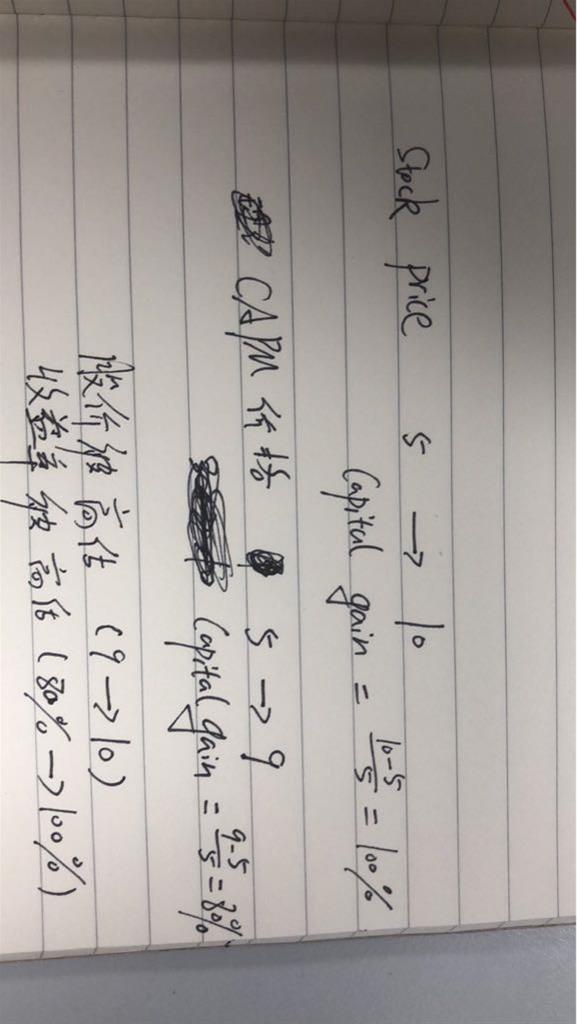 Stock price 5 → 10
Capital gain = \frac{10-5}{5} = 100%
CAPM 估 5 → 9
Capital gain = \frac{9-5}{5} = 80%
股价被高估 (9 → 10)
收益率被高估 (80% → 100%)